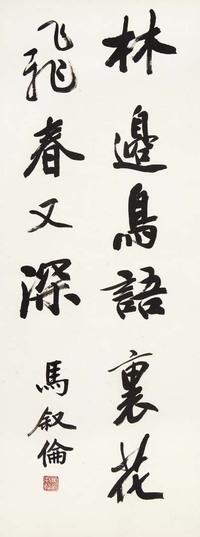 林邊鳥語裏花
飛飛春又深
馬叙倫